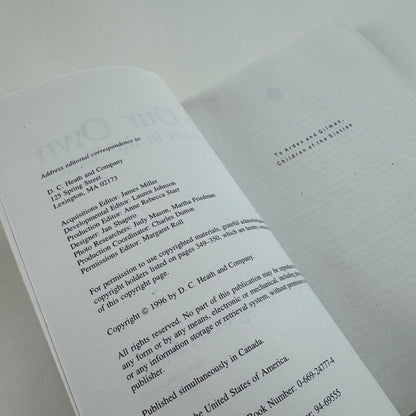 Address editorial correspondence to:
D. C. Heath and Company
125 Spring Street
Lexington, MA 02173
Acquisitions Editor: James Miller
Developmental Editor: Lauren Johnson
Production Editor: Anne Rebecca Starr
Designer: Jan Shapiro
Photo Researchers: Judy Mason, Martha Friedman
Production Coordinator: Charles Dutton
Permissions Editor: Margaret Roll
For permission to use copyrighted materials, grateful
copyright holders listed on pages 349-350, which are hereby
of this copyright page.
Copyright © 1996 by D. C. Heath and Company.
All rights reserved. No part of this publication may be
any form or by any means, electronic or mechanical, including
or any information storage or retrieval system, without
publisher.
Published simultaneously in Canada.
the United States of America.
Book Number: 0-669-24777-4
Number: 94-69555
To Arden and Gilman,
Children of the Sixties